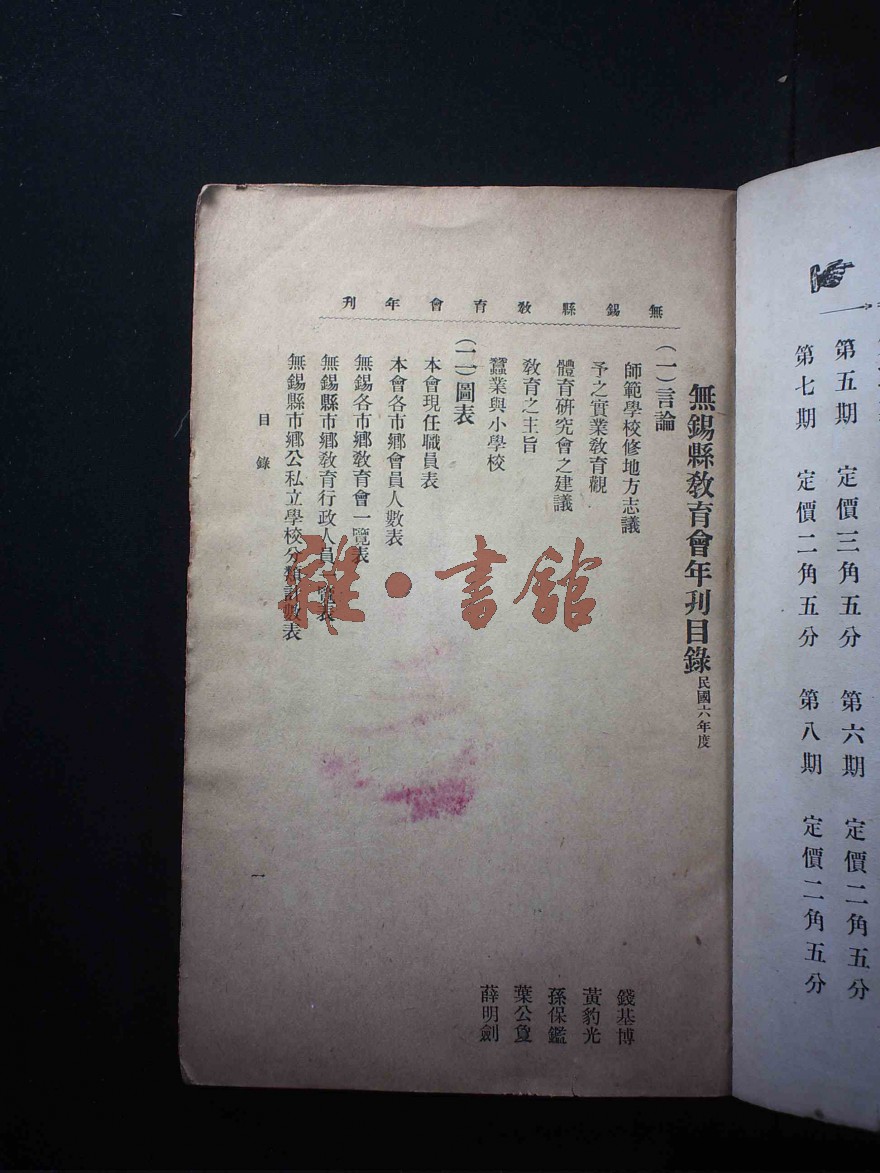 第五期　定價三角五分　第六期　定價二角五分
第七期　定價二角五分　第八期　定價二角五分
無錫縣教育會年刊
無錫縣教育會年刊目錄民國六年度
(一)言論
師範學校修地方志議　錢基博
予之實業教育觀　黃豹光
體育研究會之建議　孫保鑑
教育之主旨　葉公敻
蠶業與小學校　薛明劍
(二)圖表
本會現任職員表
本會各市鄉會員人數表
無錫各市鄉教育會一覽表
無錫縣市鄉教育行政人員一覽表
無錫縣市鄉公私立學校分類計數表
目錄
一
雜·書館